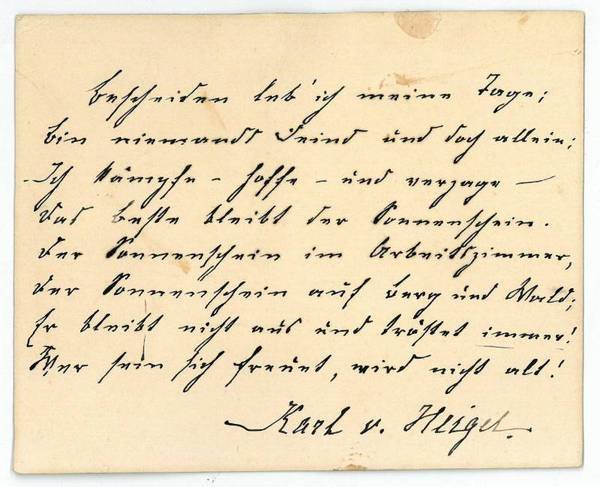 Bescheiden leb' ich meine Tage;
Bin niemands Feind und doch allein;
Ich kämpfe – hoffe – und verzage –
Das Beste bleibt der Sonnenschein.
Der Sonnenschein im Arbeitszimmer,
Der Sonnenschein auf Berg und Wald;
Er bleibt nicht aus und tröstet immer!
Wer sein sich freuet, wird nicht alt!
Karl v. Heigel.